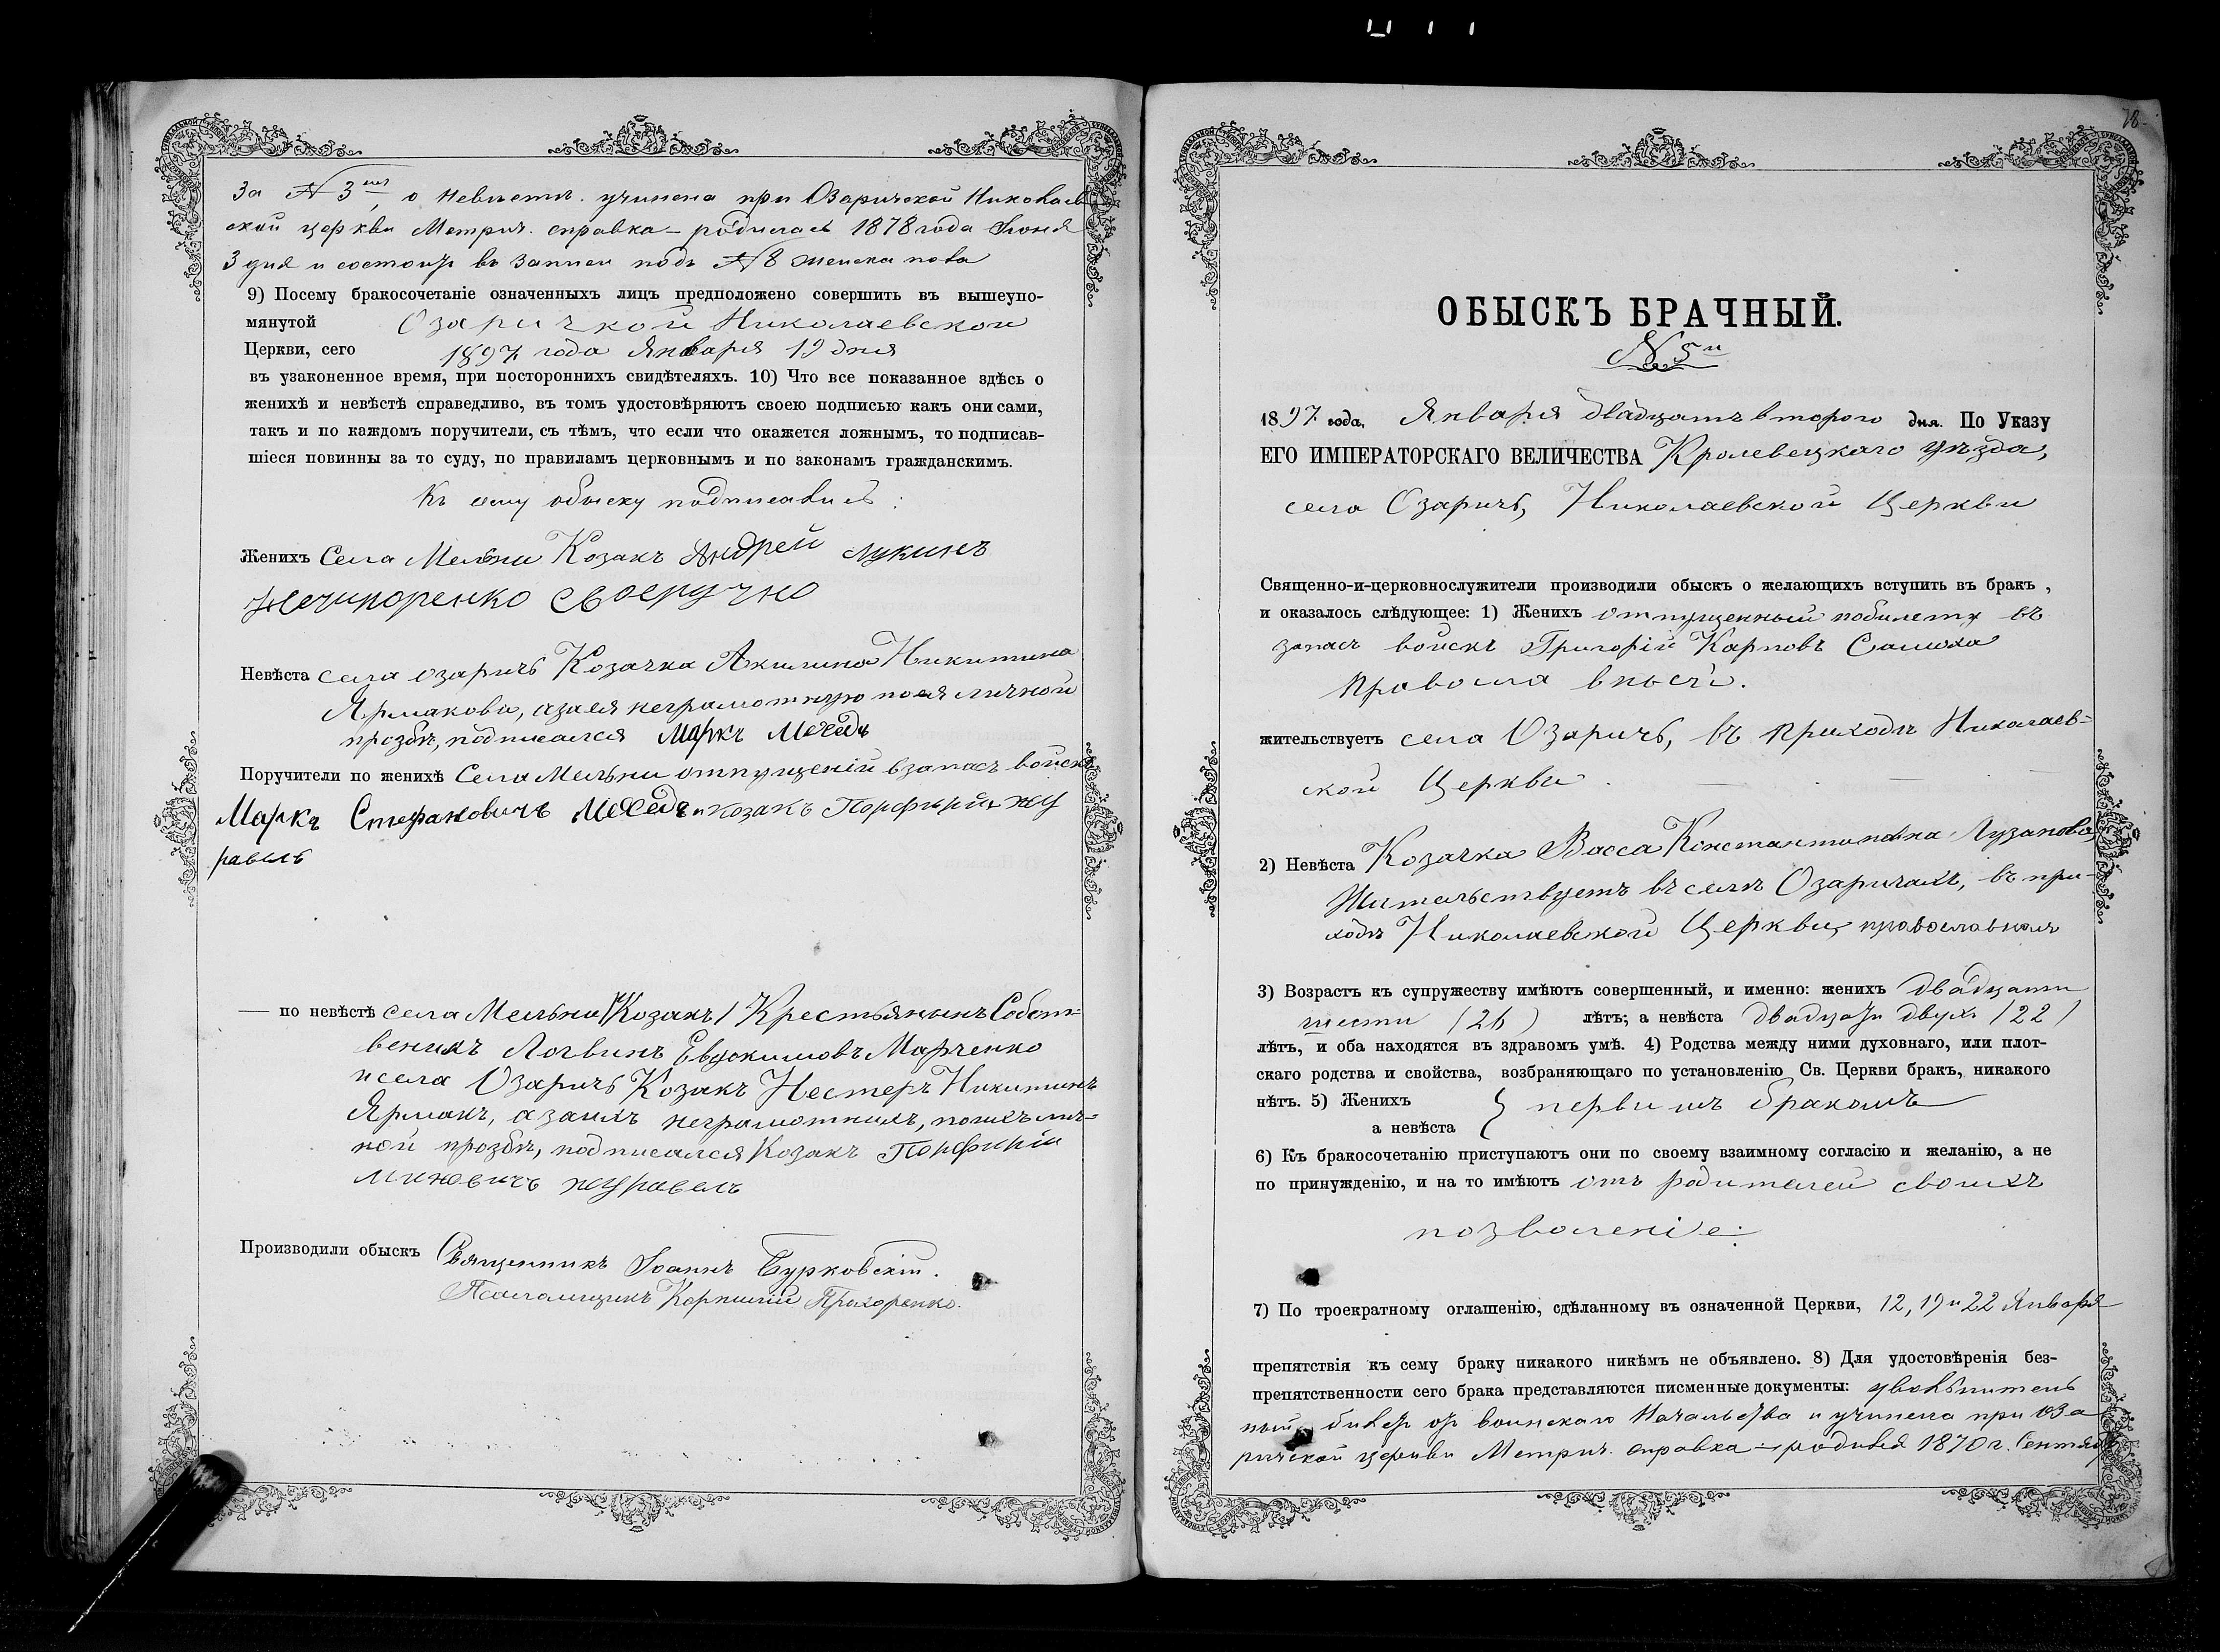 за № 3мъ, о невѣстѣ учинена при Озаричской Николаев
ской церкви Метрич. справка – родилась 1878 года Іюня
3 дня и состоитъ въ записи подъ № 8 женска пола
9) Посему бракосочетаніе означенныхъ лицъ предположено совершить въ вышеупо-
мянутой Озаричкой Николаевской
Церкви, сего 1897 года Января 19 дня
въ узаконенное время, при постороннихъ свидѣтеляхъ. 10) Что все показанное здѣсь о
женихѣ и невѣстѣ справедливо, въ томъ удостовѣряютъ своею подписью какъ они сами,
такъ и по каждомъ поручители, съ тѣмъ, что если что окажется ложнымъ, то подписав-
шіеся повинны за то суду, по правиламъ церковнымъ и по законамъ гражданскимъ.
Къ сему обыску подписались:
Женихъ Села Мельни Козакъ Андрей Лукинъ
Нечипоренко своеручно
Невѣста села Озаричъ Козачка Акилина Никитина
Ярмакова, а за ея неграмотную по ея личной
прозбѣ, подписался Маркъ Мехедь
Поручители по женихѣ Села Мельни отпущеній взапасъ войскъ
Маркъ Стефановичъ Мехедь и козакъ Порфирій жу
равель
— по невѣстѣ села Мельни /Козакъ/ Крестьянинъ Собст-
веникъ Логвинъ Евдокимовъ Марченко
и села Озаричъ Козакъ Нестеръ Никитинъ
Ярмакъ, а за ихъ неграмотныхъ, по ихъ лич-
ной прозбѣ, подписался Козакъ Порфирій
Миновичъ журавель
Производили обыскъ Священникъ Іоаннъ Бурковскій.
Псаломщикъ Корнилій Прихоренко.
78.
ОБЫСКЪ БРАЧНЫЙ.
№ 5й
1897 года, Января двадцать второго дня. По Указу
ЕГО ИМПЕРАТОРСКАГО ВЕЛИЧЕСТВА Кролевецкаго уѣзда,
села Озаричъ, Николаевской Церкви
Священно-и-церковнослужители производили обыскъ о желающихъ вступить въ бракъ,
и оказалось слѣдующее: 1) Женихъ отпущенный побилету въ
запасъ войскъ Григорій Карповъ
жительствуетъ села Озаричъ, въ приходѣ Николаев-
ской Церкви
2) Невѣста Козачка Васса Константинова Лузанова,
Жительствуетъ въ селѣ Озаричахъ, въ при-
ходѣ Николаевской Церкви, православная
3) Возрастъ къ супружеству имѣютъ совершенный, и именно: женихъ двадцати
шести (26) лѣтъ; а невѣста двадцати двухъ (22)
лѣтъ, и оба находятся въ здравомъ умѣ. 4) Родства между ними духовнаго, или плот-
скаго родства и свойства, возбраняющаго по установленію Св. Церкви бракъ, никакого
нѣтъ. 5) Женихъ } первимъ бракомъ
а невѣста
6) Къ бракосочетанію приступаютъ они по своему взаимному согласію и желанію, а не
по принужденію, и на то имѣютъ отъ родителей своихъ
позволеніе.
7) По троекратному оглашенію, сдѣланному въ означенной Церкви, 12, 19 и 22 Января
препятствія къ сему браку никакого никѣмъ не объявлено. 8) Для удостовѣренія без-
препятственности сего брака представляются писменные документы: увольнитель
ный билетъ отъ воинскаго Начальства и учинена при Оза
ричской церкви Метрич. справка – родился 1870 г. Сентяб